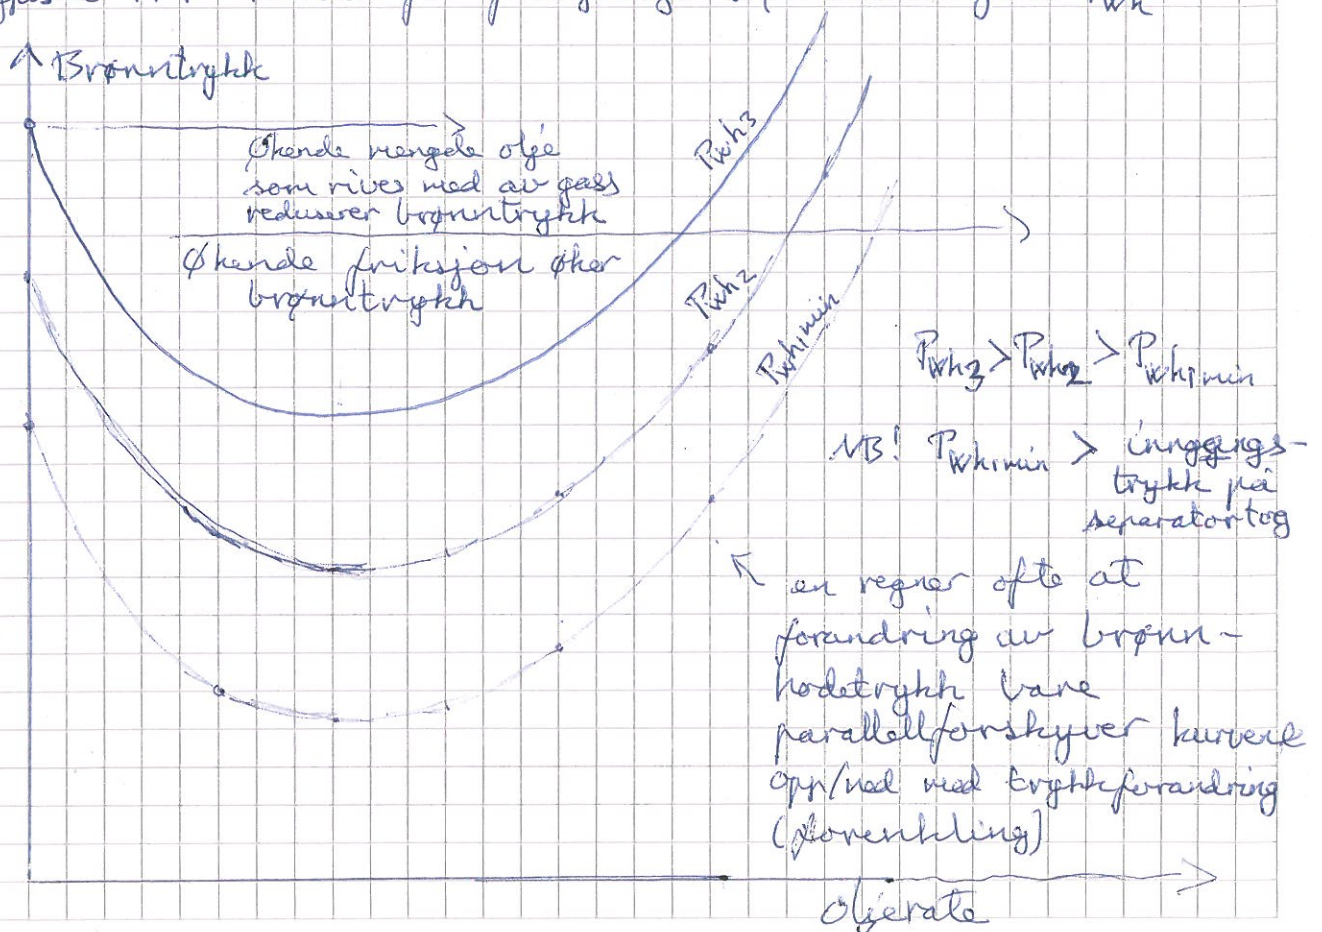 Pwh
Brønntrykk
Økende mengde olje
som rives med av gass
reduserer brønntrykk
Økende friksjon øker
brønntrykk
Pwh3
Pwh2
Pwh1min
Pwh3 > Pwh2 > Pwh1min
NB! Pwh1min > inngangs-
trykk på
separatortog
en regner ofte at
forandring av brønn-
hodetrykk bare
parallellforskyver kurvene
opp/ned med trykkforandring
(forenkling)
Oljerate